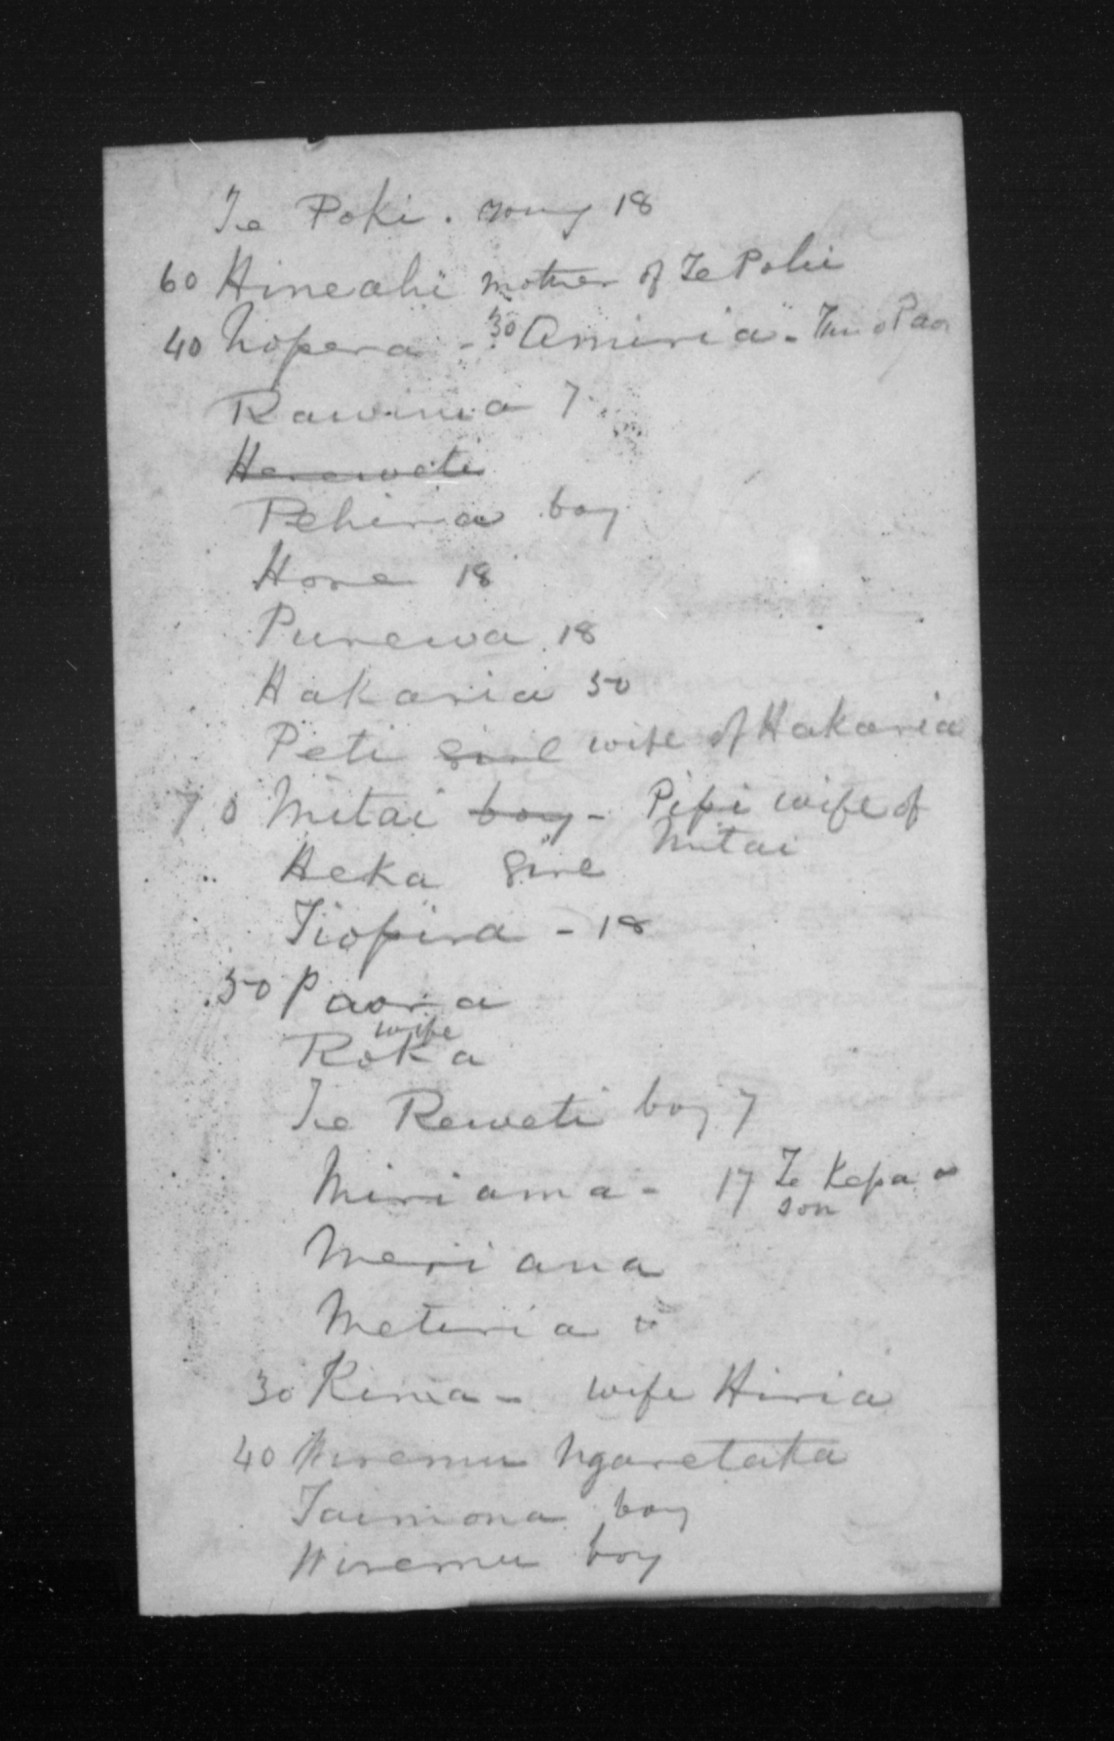 Te Poki. young 18
60 Hineahi mother of Te Poki
40 Nopera - 30 Amiria -
Rawinia 7
Hereweti
Pehira boy
Hone 18
Purewa 18
Hakaria 50
Peti girl wife of Hakaria
70 Mitai boy - Pipi wife of
Mitai
Heka girl
Tiopira - 18
50 Paora
wife
Roka
Te Reweti boy 7
Miriama - 17 Te Kepa
son
Meriana
Meteria
30 Rima - wife Hiria
40 Wiremu Ngaretata
Taimona boy
Wiremu boy